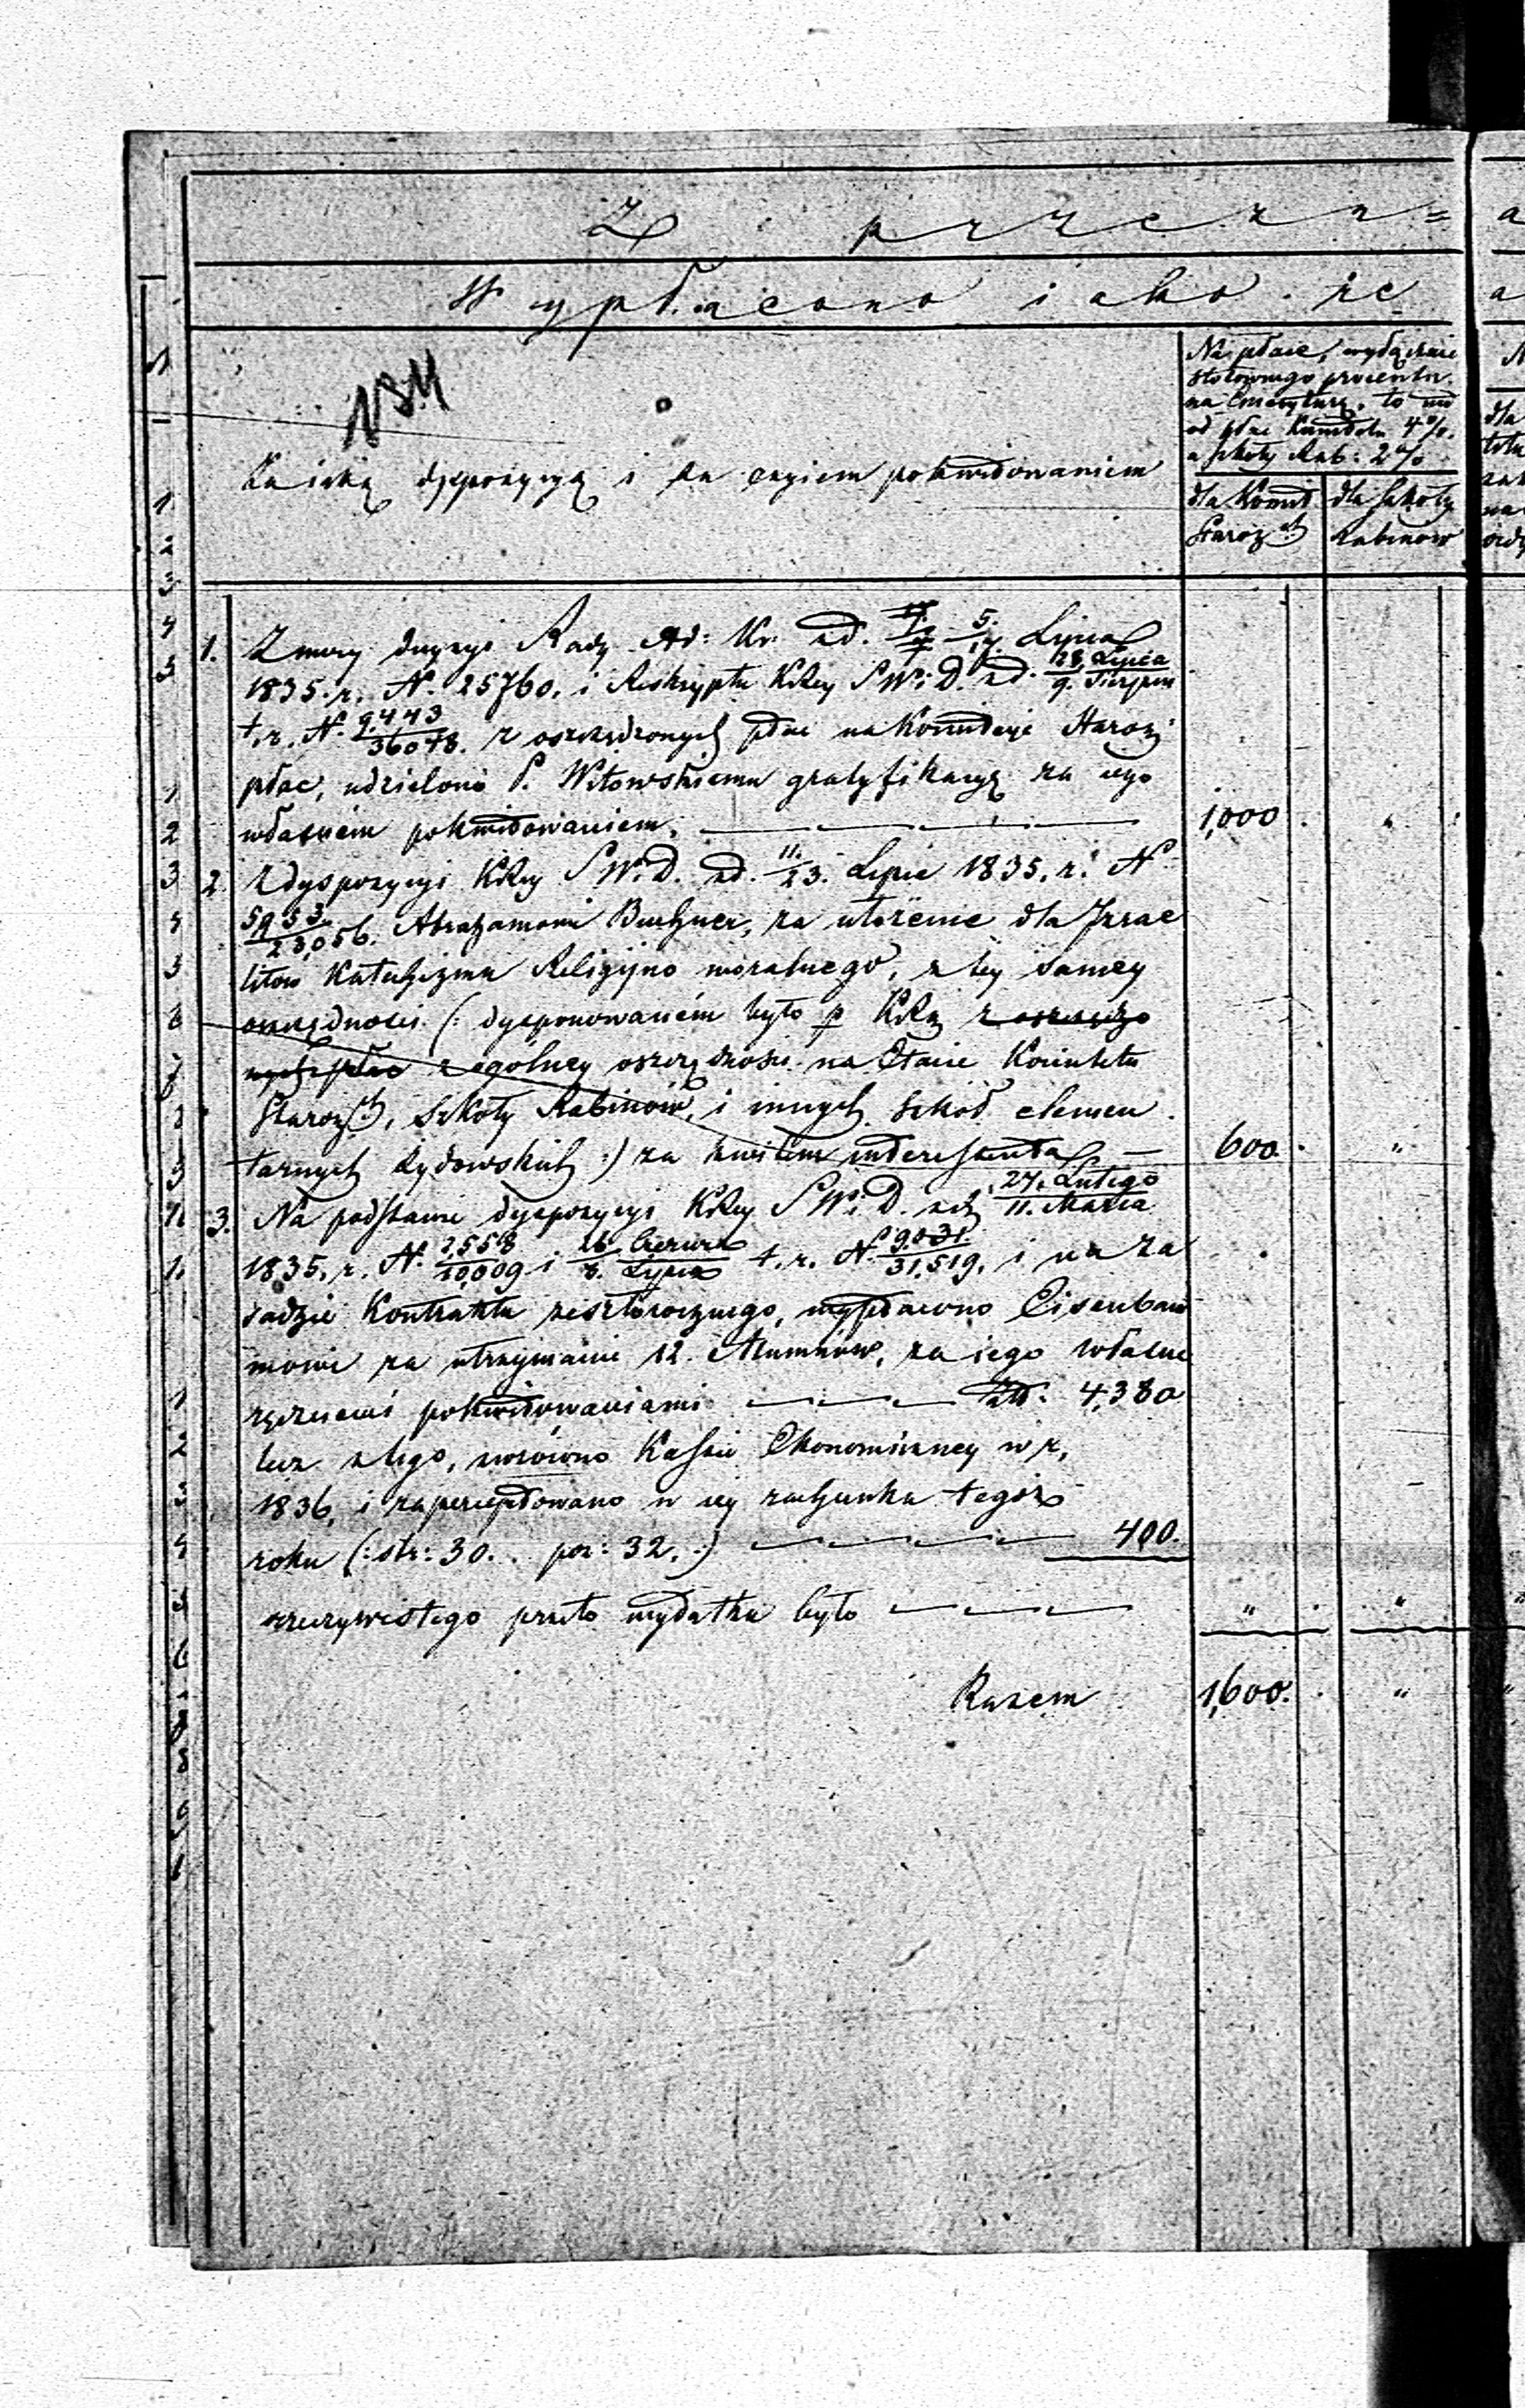 Z przezn=
Wypłacono iako rze
134
Na płace, wyłącznie
stołowego procentu
na Emeryturę, to iest
od płac Komitetu 4%.
a szkoły Rab: 2%
Za iaką dyspozycyą i za czyiem pokwitowaniem
dla Komit
Staroz.
dla Szkoły
Rabinów
1. Z mocy decyzyi Rady Ad: Kr. z d. 5/17 Lipca
1835. r. N. 25760. i Reskryptu KRzy S W. i D. z d. 28 Lipca/9. Sierpnia
t. r. N. 9443/36078. z oszczędzonych płac na Komitecie Staroz:
płac, udzielono P. Witowskiemu gratyfikacyą za iego
własnem pokwitowaniem. 1,000 "
2. Z dyspozycyi KRzy S W. i D. z d. 11./23. Lipca 1835. r. N
5953/23,056. Abrahamowi Buchner, za ułożenie dla Izrae
litów Katechizmu Religijno moralnego, z tey samey
oszczędności (: dysponowaniem było p KRzą z oszczędzo
nych płac z ogólney oszczędności na Etacie Komitetu
Staroz., Szkoły Rabinów, i innych Szkół elemen
tarnych Żydowskich :) za kwitem interessenta. 600. "
3. Na podstawie dyspozycyi KRzy S W. i D. z d. 27. Lutego/11. Marca
1835. r. N. 2,558/10,009 i 26 Czerwca/8. Lipca t. r. N. 9,031/31,519. i na za
sadzie Kontraktu zeszłorocznego, wypłacono Eisenbau
mowi za utrzymanie 12. Alumnów, za iego własno
ręcznemi pokwitowaniami Złł: 4,380
lecz z tego, zwrócono Kassie Ekonomiczney w r.
1836, i zapercypowano w iey rachunku tegoż
roku (: str: 30. poz: 32. :) 400.
rzeczywistego przeto wydatku było " "
Razem 1,600. "